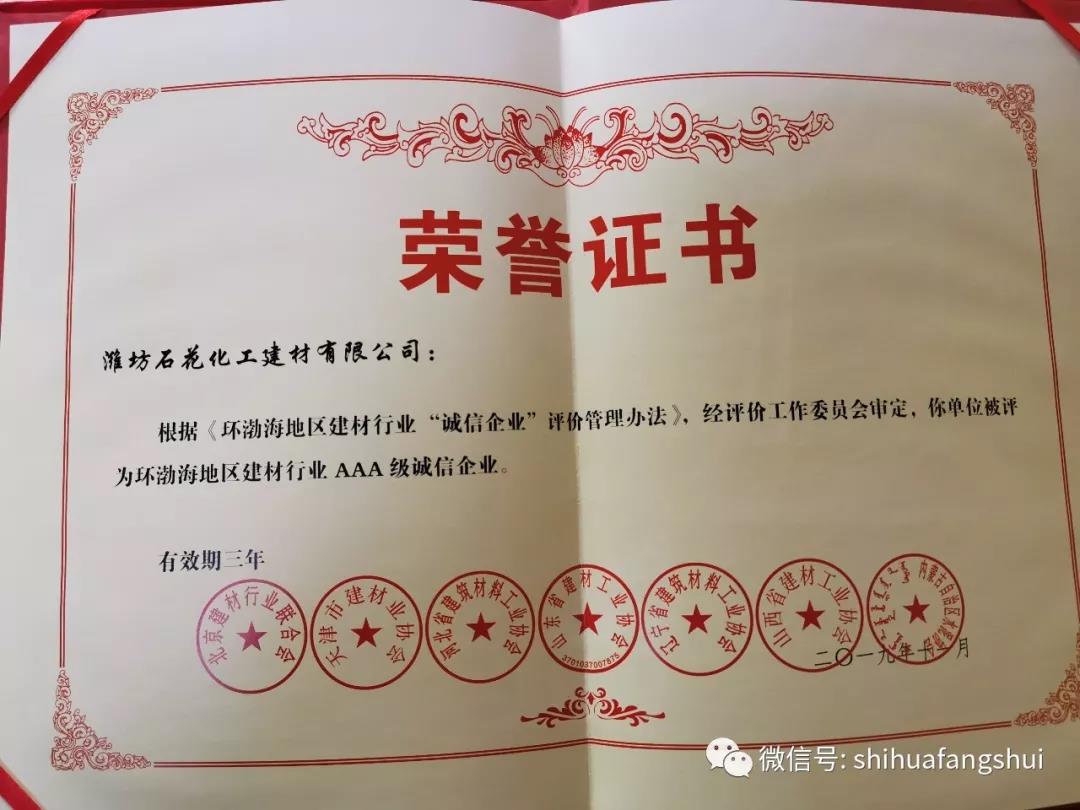 荣誉证书
潍坊石花化工建材有限公司：
根据《环渤海地区建材行业“诚信企业”评价管理办法》，经评价工作委员会审定，你单位被评
为环渤海地区建材行业 AAA 级诚信企业。
有效期三年
北京建材行业联合会
天津市建材业协会
河北省建筑材料工业协会
山东省建材工业协会
3701037007875
辽宁省建筑材料工业协会
山西省建材工业协会
内蒙古自治区
二〇一九年十 月
微信号: shihuafangshui